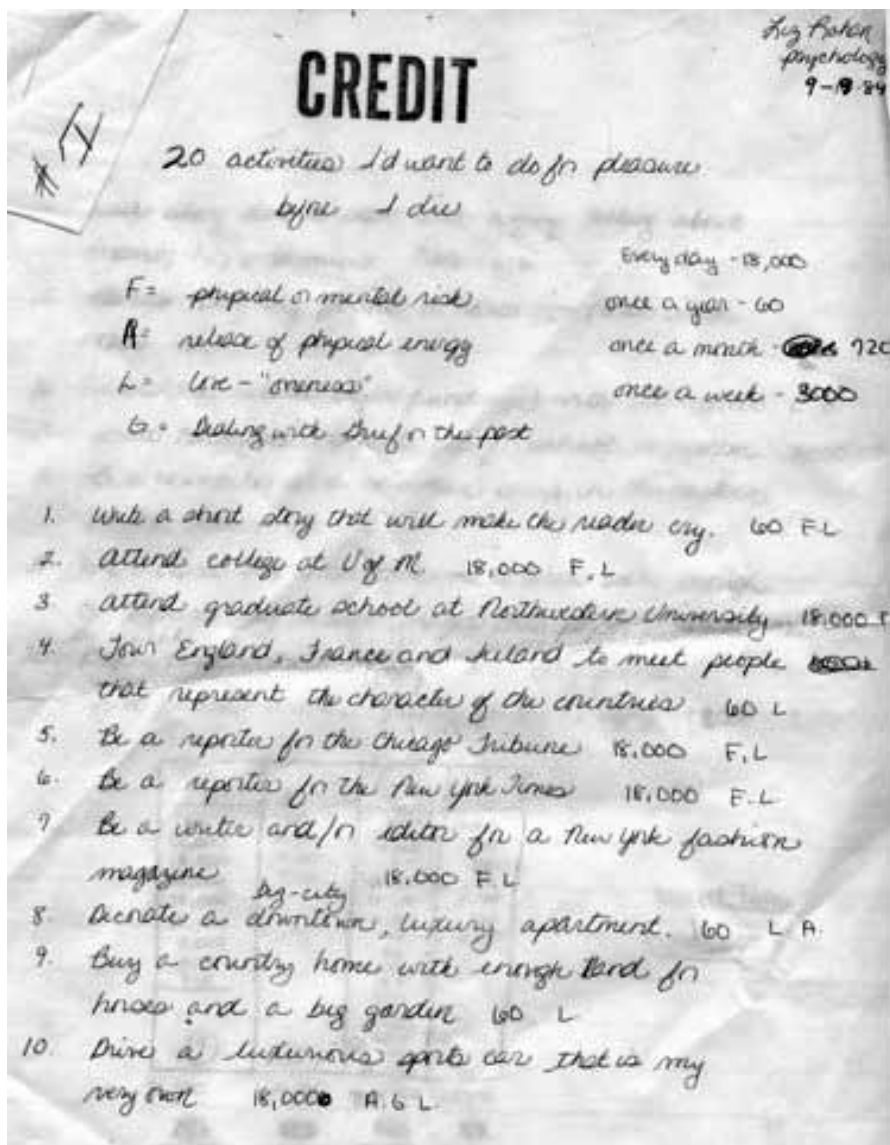 Liz Rohan
Psychology
9-19-84
CREDIT
# 1
20 activities I'd want to do for pleasure
before I die
Every day - 18,000
F = physical or mental risk
once a year - 60
A = release of physical energy
once a month - 720
L = Love - "oneness"
once a week - 3000
G = Dealing with Grief or the past
1. Write a short story that will make the reader cry. 60 F L
2. Attend college at U of M. 18,000 F, L
3 Attend graduate school at Northwestern University 18,000 F
4. Tour England, France and Ireland to meet people
that represent the character of the countries 60 L
5. Be a reporter for the Chicago Tribune 18,000 F, L
6. Be a reporter for the New York Times 18,000 F. L
7 Be a writer and/or editor for a New York fashion
magazine 18,000 F, L
big-city
8. Decorate a downtown, luxury apartment. 60 L A.
9. Buy a country home with enough land for
horses and a big garden 60 L
10. Drive a luxurious sports car that is my
very own 18,000 A. G L.